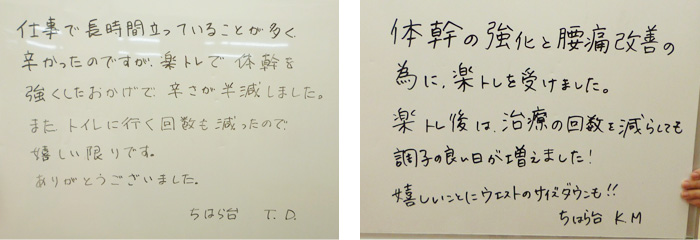 仕事で長時間立っていることが多く、
辛かったのですが、楽トレで体幹を
強くしたおかげで辛さが半減しました。
またトイレに行く回数も減ったので
嬉しい限りです。
ありがとうございました。
ちはら台 T.D.
体幹の強化と腰痛改善の
為に、楽トレを受けました。
楽トレ後は、治療の回数を減らしても
調子の良い日が増えました!
嬉しいことにウエストのサイズダウンも!!
ちはら台 K.M